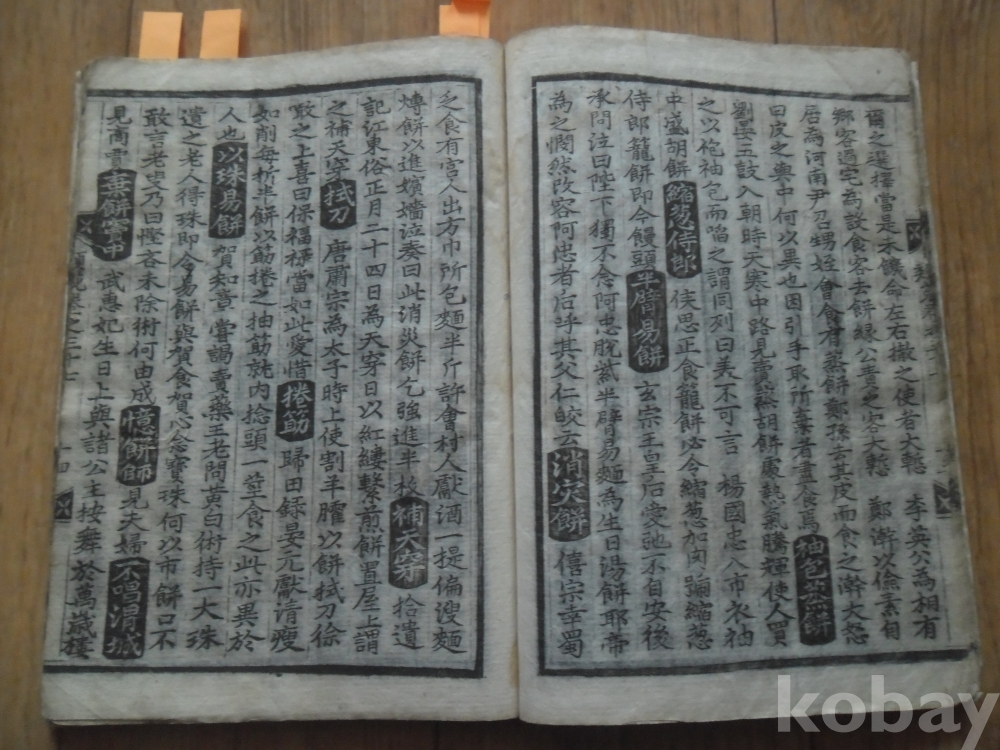 爾之選擇當是未饑命左右撤之使者大慙 李英公為相有
鄉客過宅為設食客去餅緣公責之客大慙 鄭澣以儉素自
居為河南尹召甥姪會食有蒸餅鄭孫去其皮而食之澣大怒
曰皮之與中何以異也因引手取所棄者盡食焉 袖包蒸餅
劉晏五鼓入朝時天寒中路見賣蒸胡餅處熱氣騰輝使人買
之以袍袖包而啗之謂同列曰美不可言 楊國忠入市衣袖
中盛胡餅 縮葱侍郎 侯思正食籠餅必令縮葱加肉縮葱
侍郎籠餅即今饅頭 半臂易餅 玄宗王皇后愛弛不自安後
承問泣曰陛下獨不念阿忠脫紫半臂易麵為生日湯餅耶帝
為之憫然改容阿忠者后呼其父仁皎云 消灾餅 僖宗幸蜀
乏食有宮人出方巾所包麵半斤許會村人獻酒一提偏溲麵
煿餅以進嬪嬙泣奏曰此消災餅乞強進半枚 補天穿 拾遺
記江東俗正月二十四日為天穿日以紅縷繫煎餅置屋上謂
之補天穿 拭刀 唐肅宗為太子時上使割羊臛以餅拭刀徐
啖之上喜曰保福祿當如此愛惜 捲筯 歸田録晏元獻清瘦
如削每析半餅以筯捲之抽筯就內捻頭一莖食之此亦異於
人也 以珠易餅 賀知章嘗謁賣藥王老問黃白術持一大珠
遺之老人得珠即令易餅與賀食賀心念寶珠何以市餅口不
敢言老叟乃曰慳吝未除術何由成 憶餅師 見夫婦 不唱渭城
見商賈 棄餅竇中 武惠妃生日上與諸公主按舞於萬歲樓
kobay